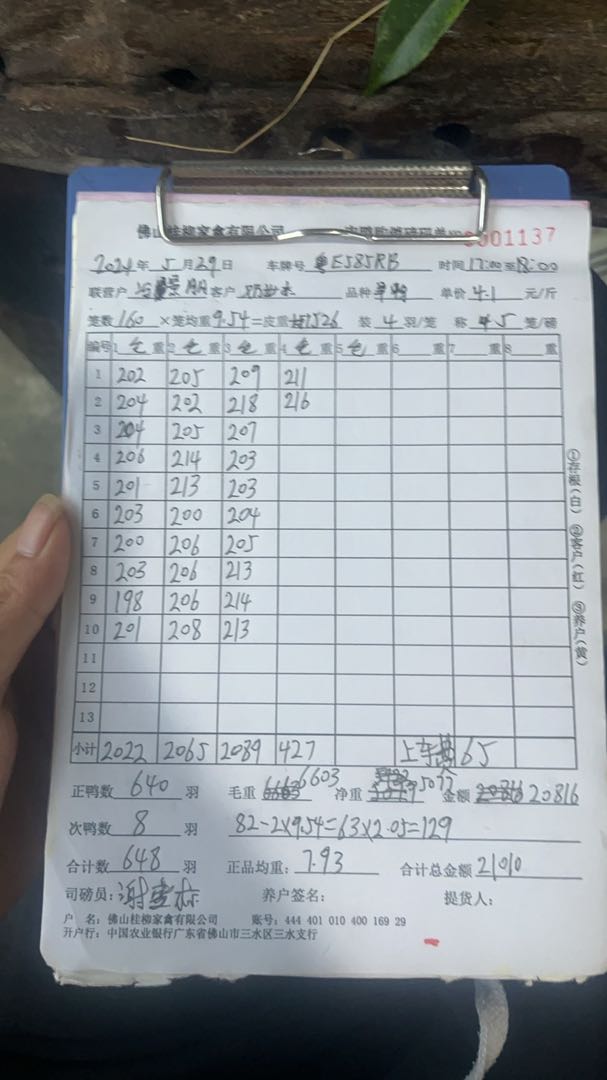 佛山桂柳家禽有限公司 0001137
2024年5月29日 车牌号 粤E585RB 时间17:00至18:00
联营户 客户 品种 单价 4.1 元/斤
笼数160 ×笼均重9.54=皮重1526 装 4 羽/笼 称 5 笼/磅
编号 1 毛 重 2 毛 重 3 毛 重 4 毛 重 5 毛 重 6 重 7 重 8 重
1 202 205 209 211
2 204 202 218 216
3 204 205 207
4 206 214 203
5 201 213 203
6 203 200 204
7 200 206 205
8 203 206 213
9 198 206 214
10 201 208 213
11
12
13
小计 2022 2065 2089 427 上车 65
正鸭数 640 羽 毛重 6603 净重 5077 金额 20816
次鸭数 8 羽 82-2×9.54=63×2.05=129
合计数 648 羽 正品均重: 7.93 合计总金额 21010
司磅员: 养户签名: 提货人:
户 名: 佛山桂柳家禽有限公司 账号: 444 401 010 400 169 29
开户行: 中国农业银行广东省佛山市三水区三水支行
①存根(白) ②客户(红) ③养户(黄)